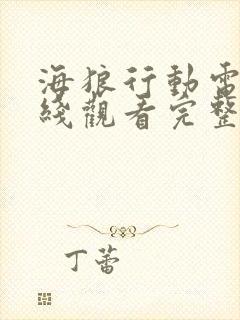 海狼行動電
綫觀看完整
丁蕾